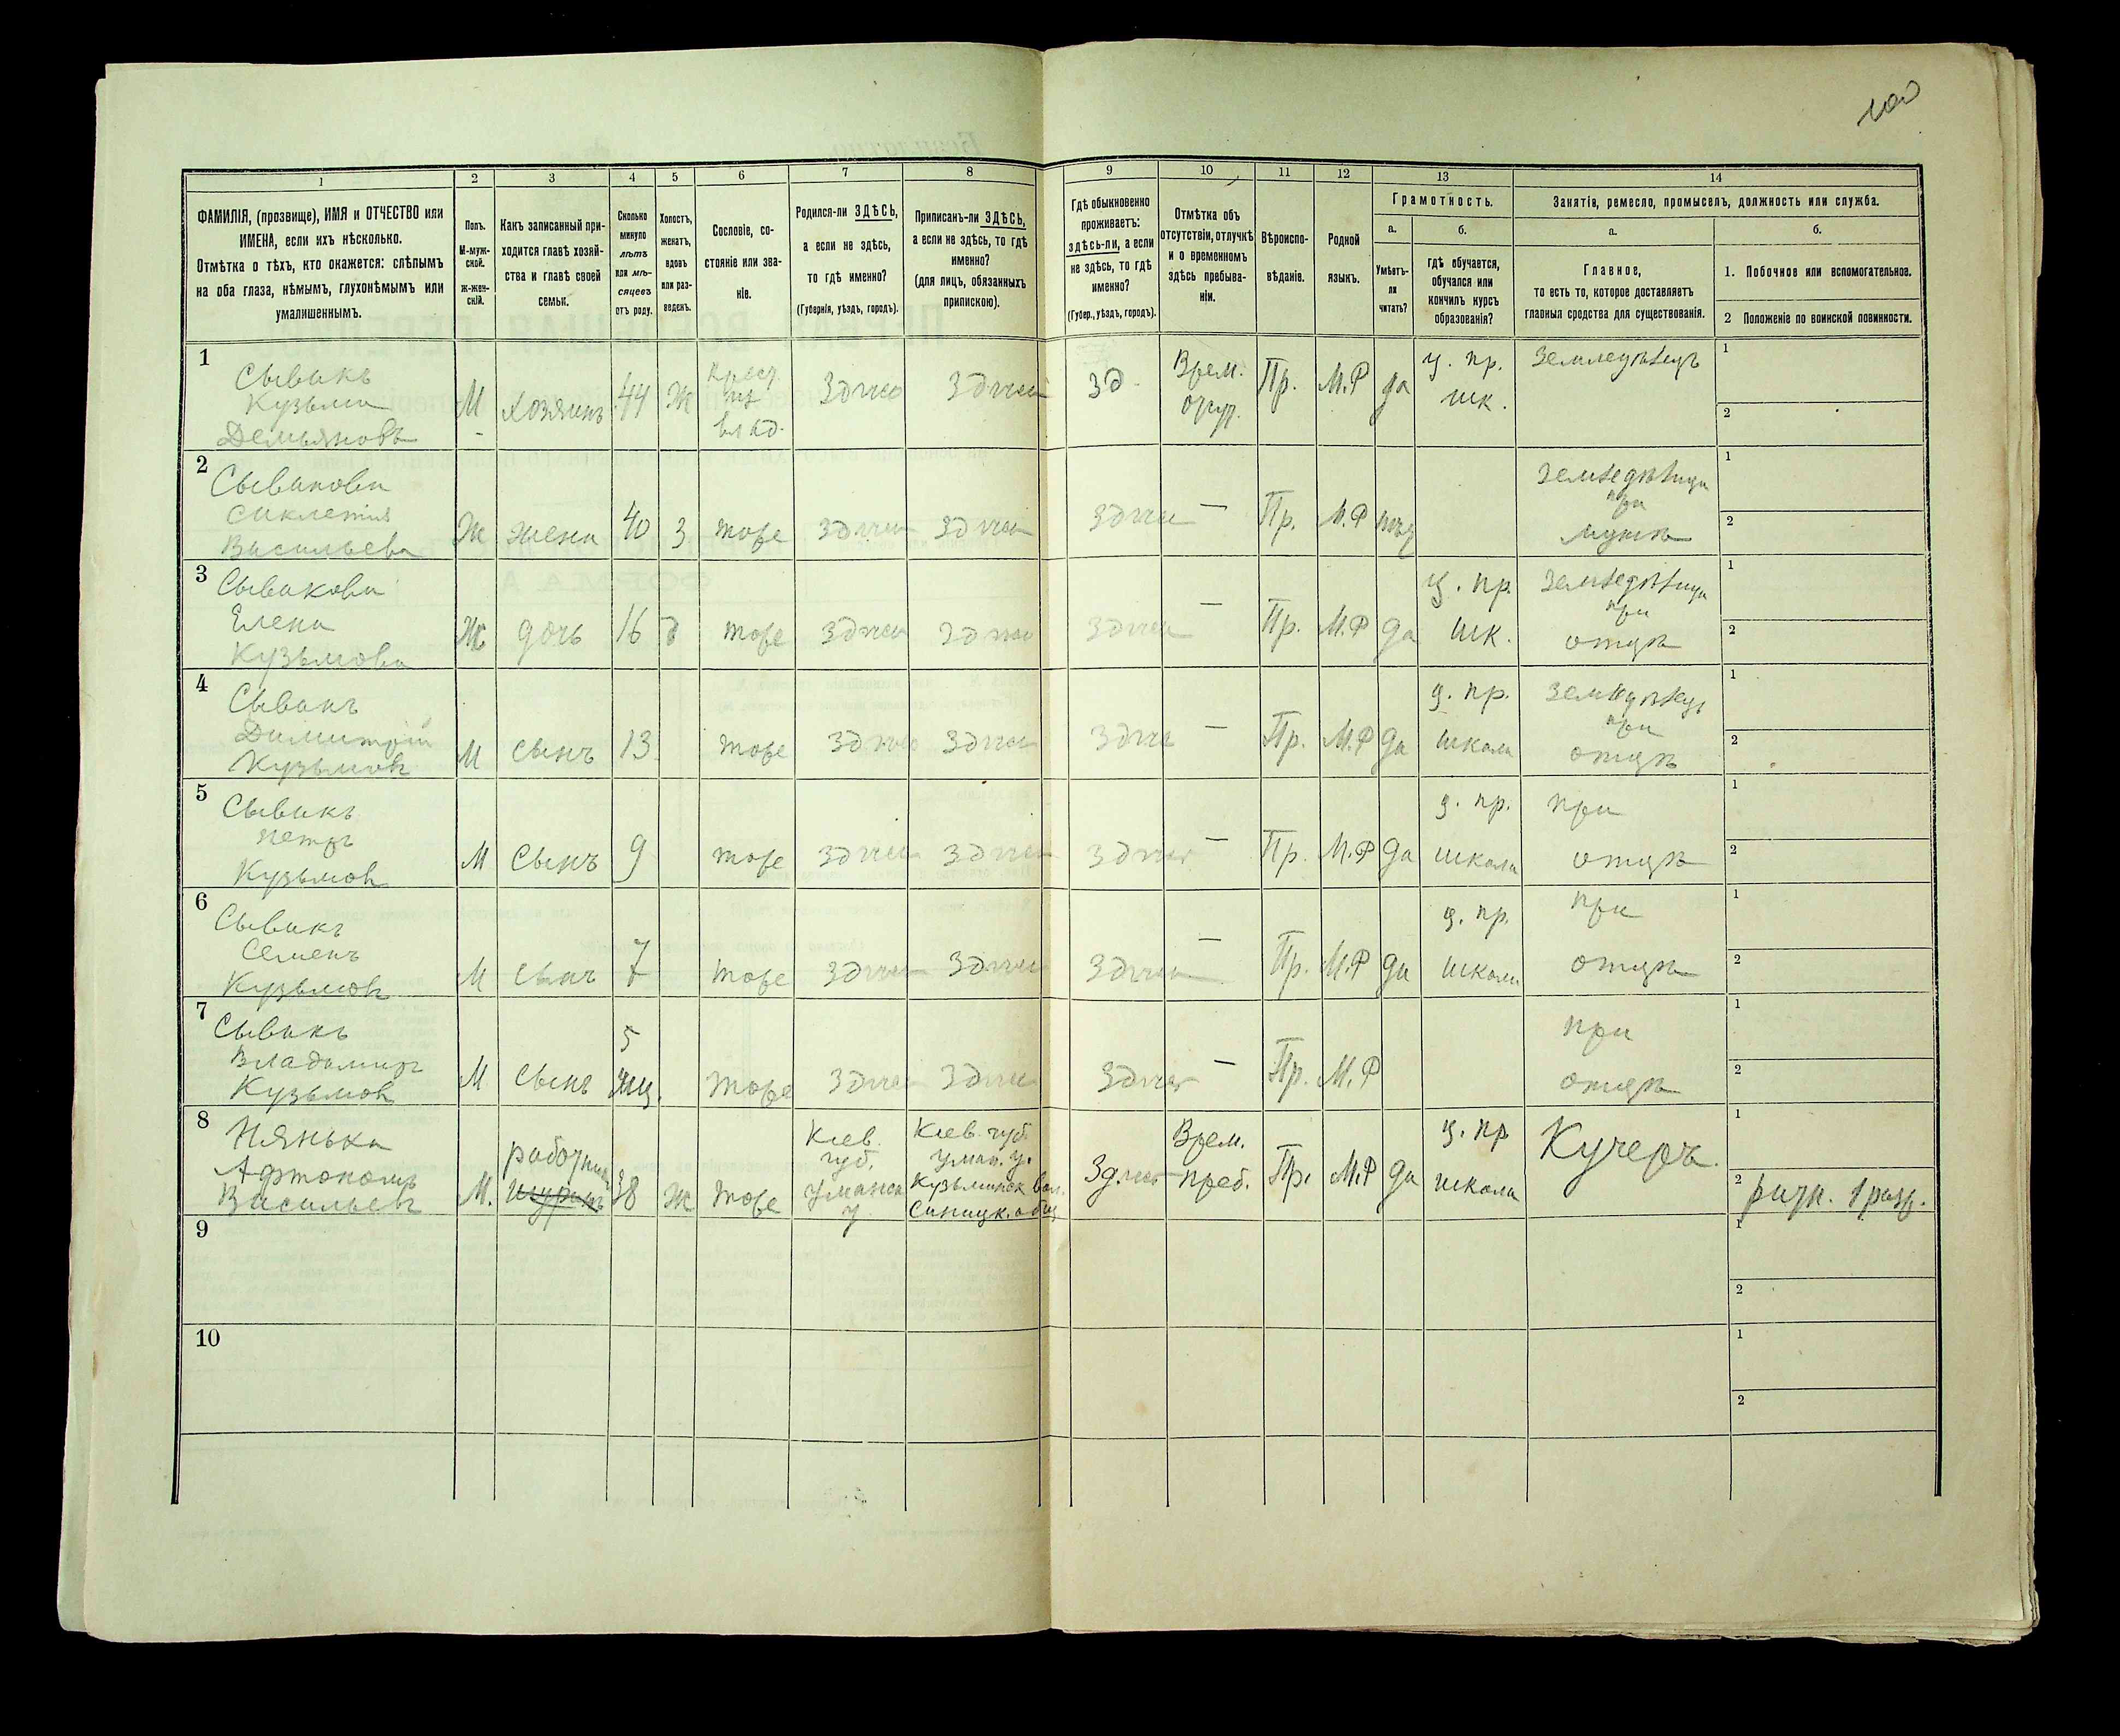 100
1 2 3 4 5 6 7 8 9 10 11 12 13 14
ФАМИЛІЯ, (прозвище), ИМЯ и ОТЧЕСТВО или
ИМЕНА, если ихъ нѣсколько.
Отмѣтка о тѣхъ, кто окажется: слѣпымъ
на оба глаза, нѣмымъ, глухонѣмымъ или
умалишеннымъ.
Полъ.
М-муж-
ской.
ж-жен-
скій.
Какъ записанный при-
ходится главѣ хозяй-
ства и главѣ своей
семьи.
Сколько
минуло
лѣтъ
или мѣ-
сяцевъ
отъ роду.
Холостъ,
женатъ,
вдовъ
или раз-
веденъ.
Сословіе, со-
стояніе или зва-
ніе.
Родился-ли ЗДѢСЬ,
а если не здѣсь,
то гдѣ именно?
(Губернія, уѣздъ, городъ).
Приписанъ-ли ЗДѢСЬ,
а если не здѣсь, то гдѣ
именно?
(для лицъ, обязанныхъ
припискою).
Гдѣ обыкновенно
проживаетъ:
здѣсь-ли, а если
не здѣсь, то гдѣ
именно?
(Губер., уѣздъ, городъ).
Отмѣтка объ
отсутствіи, отлучкѣ
и о временномъ
здѣсь пребыва-
ніи.
Вѣроиспо-
вѣданіе.
Родной
языкъ.
Грамотность.
а.
Умѣетъ-
ли
читать?
б.
гдѣ обучается,
обучался или
кончилъ курсъ
образованія?
Занятіе, ремесло, промыселъ, должность или служба.
а.
Главное,
то есть то, которое доставляетъ
главныя средства для существованія.
б.
1. Побочное или вспомогательное.
2 Положеніе по воинской повинности.
1
Сывакъ
Кузьма
Демьяновъ
М
хозяинъ
44
Ж
крест.
из
влад.
Здѣсь
Здѣсь
Зд.
Врем.
отсут.
Пр.
М.Р
да
ц. пр.
шк.
Земледѣлецъ
1
2
2
Сывакова
Васильева
Ж
жена
40
З
тоже
Здѣсь
Здѣсь
Здѣсь
—
Пр.
М.Р
нѣт
Земледѣлица
при
мужѣ
1
2
3
Сывакова
Елена
Кузьмова
Ж
дочь
16
д
тоже
Здѣсь
Здѣсь
Здѣсь
—
Пр.
М.Р
да
ц. пр.
шк.
Земледѣлица
при
отцѣ
1
2
4
Сывакъ
Димитрій
Кузьмов
М
сынъ
13
тоже
Здѣсь
Здѣсь
Здѣсь
—
Пр.
М.Р
да
ц. пр.
школа
Земледѣлец
при
отцѣ
1
2
5
Сывакъ
Петръ
Кузьмов
М
Сынъ
9
тоже
Здѣсь
Здѣсь
Здѣсь
—
Пр.
М.Р
да
ц. пр.
школа
при
отцѣ
1
2
6
Сывакъ
Семенъ
Кузьмов
М
сынъ
7
тоже
Здѣсь
Здѣсь
Здѣсь
—
Пр.
М.Р
да
ц. пр.
школа
при
отцѣ
1
2
7
Сывакъ
Владимиръ
Кузьмов
М
Сынъ
5
мц.
тоже
Здѣсь
Здѣсь
Здѣсь
—
Пр.
М.Р
при
отцѣ
1
2
8
Нянька
Васильевъ
М.
работник
38
Ж
тоже
Кіев.
губ.
Уманск
у.
Кіев. губ.
Уман. у.
Кузьминск вол.
Синицк. общ
Здѣсь
Врем.
преб.
Пр.
М.Р
да
ц. пр
школа
Кучеръ.
1
2
ратн. 1 разр.
9
1
2
10
1
2